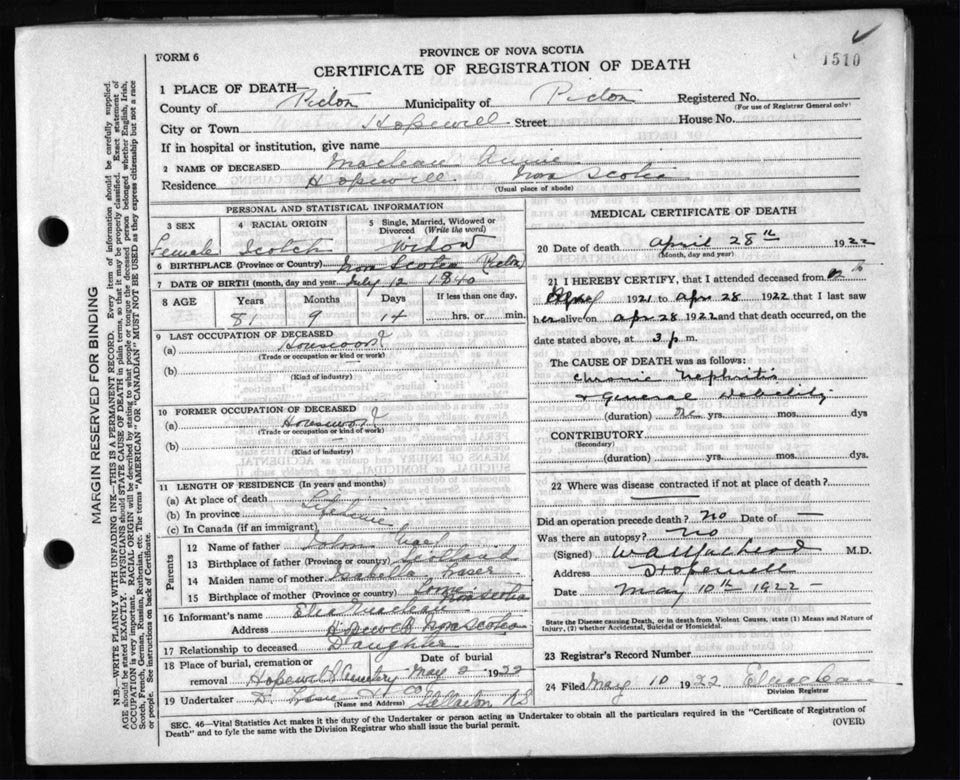 1510
FORM 6
PROVINCE OF NOVA SCOTIA
CERTIFICATE OF REGISTRATION OF DEATH
1 PLACE OF DEATH
County of Pictou Municipality of Pictou Registered No.
(For use of Registrar General only)
City or Town Hopewell Street House No.
If in hospital or institution, give name
2 NAME OF DECEASED Maclean Annie
Residence Hopewell Nova Scotia
(Usual place of abode)
PERSONAL AND STATISTICAL INFORMATION
3 SEX
4 RACIAL ORIGIN
5 Single, Married, Widowed or Divorced (Write the word)
Female Scotch Widow
6 BIRTHPLACE (Province or Country) Nova Scotia (Pictou)
7 DATE OF BIRTH (month, day and year) July 12 1840
8 AGE Years Months Days If less than one day,
81 9 14 hrs. or min.
9 LAST OCCUPATION OF DECEASED
(a) Housework
(Trade or occupation or kind of work)
(b)
(Kind of industry)
10 FORMER OCCUPATION OF DECEASED
(a) Housework
(Trade or occupation or kind of work)
(b)
(Kind of industry)
11 LENGTH OF RESIDENCE (In years and months)
(a) At place of death
(b) In province Lifetime
(c) In Canada (if an immigrant)
Parents
12 Name of father John
13 Birthplace of father (Province or country) Scotland
14 Maiden name of mother Isabella Fraser
15 Birthplace of mother (Province or country) Lorne Nova Scotia
16 Informant's name Maclean
Address Hopewell Nova Scotia
17 Relationship to deceased Daughter
18 Place of burial, cremation or removal Hopewell Cemetery
Date of burial May 2 1922
19 Undertaker D. & Co Stellarton NS
(Name and Address)
MEDICAL CERTIFICATE OF DEATH
20 Date of death April 28th 1922
(Month, day and year)
21 I HEREBY CERTIFY, that I attended deceased from
1921 to Apr 28 1922 that I last saw
her alive on Apr 28 1922 and that death occurred, on the
date stated above, at 3 p m.
The CAUSE OF DEATH was as follows:
Chronic Nephritis
& General Debility
(duration) yrs. mos. dys
CONTRIBUTORY
(Secondary)
(duration) yrs. mos. dys.
22 Where was disease contracted if not at place of death?
Did an operation precede death? No Date of —
Was there an autopsy? No
(Signed) M.D.
Address Hopewell
Date May 10th 1922
State the Disease causing Death, or in death from Violent Causes, state (1) Means and Nature of
Injury, (2) whether Accidental, Suicidal or Homicidal.
23 Registrar's Record Number
24 Filed May 10 1922
Division Registrar
SEC. 46—Vital Statistics Act makes it the duty of the Undertaker or person acting as Undertaker to obtain all the particulars required in the "Certificate of Registration of
Death" and to fyle the same with the Division Registrar who shall issue the burial permit.
(OVER)
MARGIN RESERVED FOR BINDING
N.B.—WRITE PLAINLY WITH UNFADING INK—THIS IS A PERMANENT RECORD. Every item of information should be carefully supplied.
AGE should be stated EXACTLY. PHYSICIANS should STATE CAUSE OF DEATH in plain terms, so that it may be properly classified. Exact statement of
OCCUPATION is very important. RACIAL ORIGIN will be described by stating to what people or tongue the deceased person belonged whether English, Irish,
Scotch, French, German, Russian, Ruthenian, etc. The terms "AMERICAN" OR "CANADIAN" MUST NOT BE USED as they express citizenship but not a race
or people. See instructions on back of Certificate.